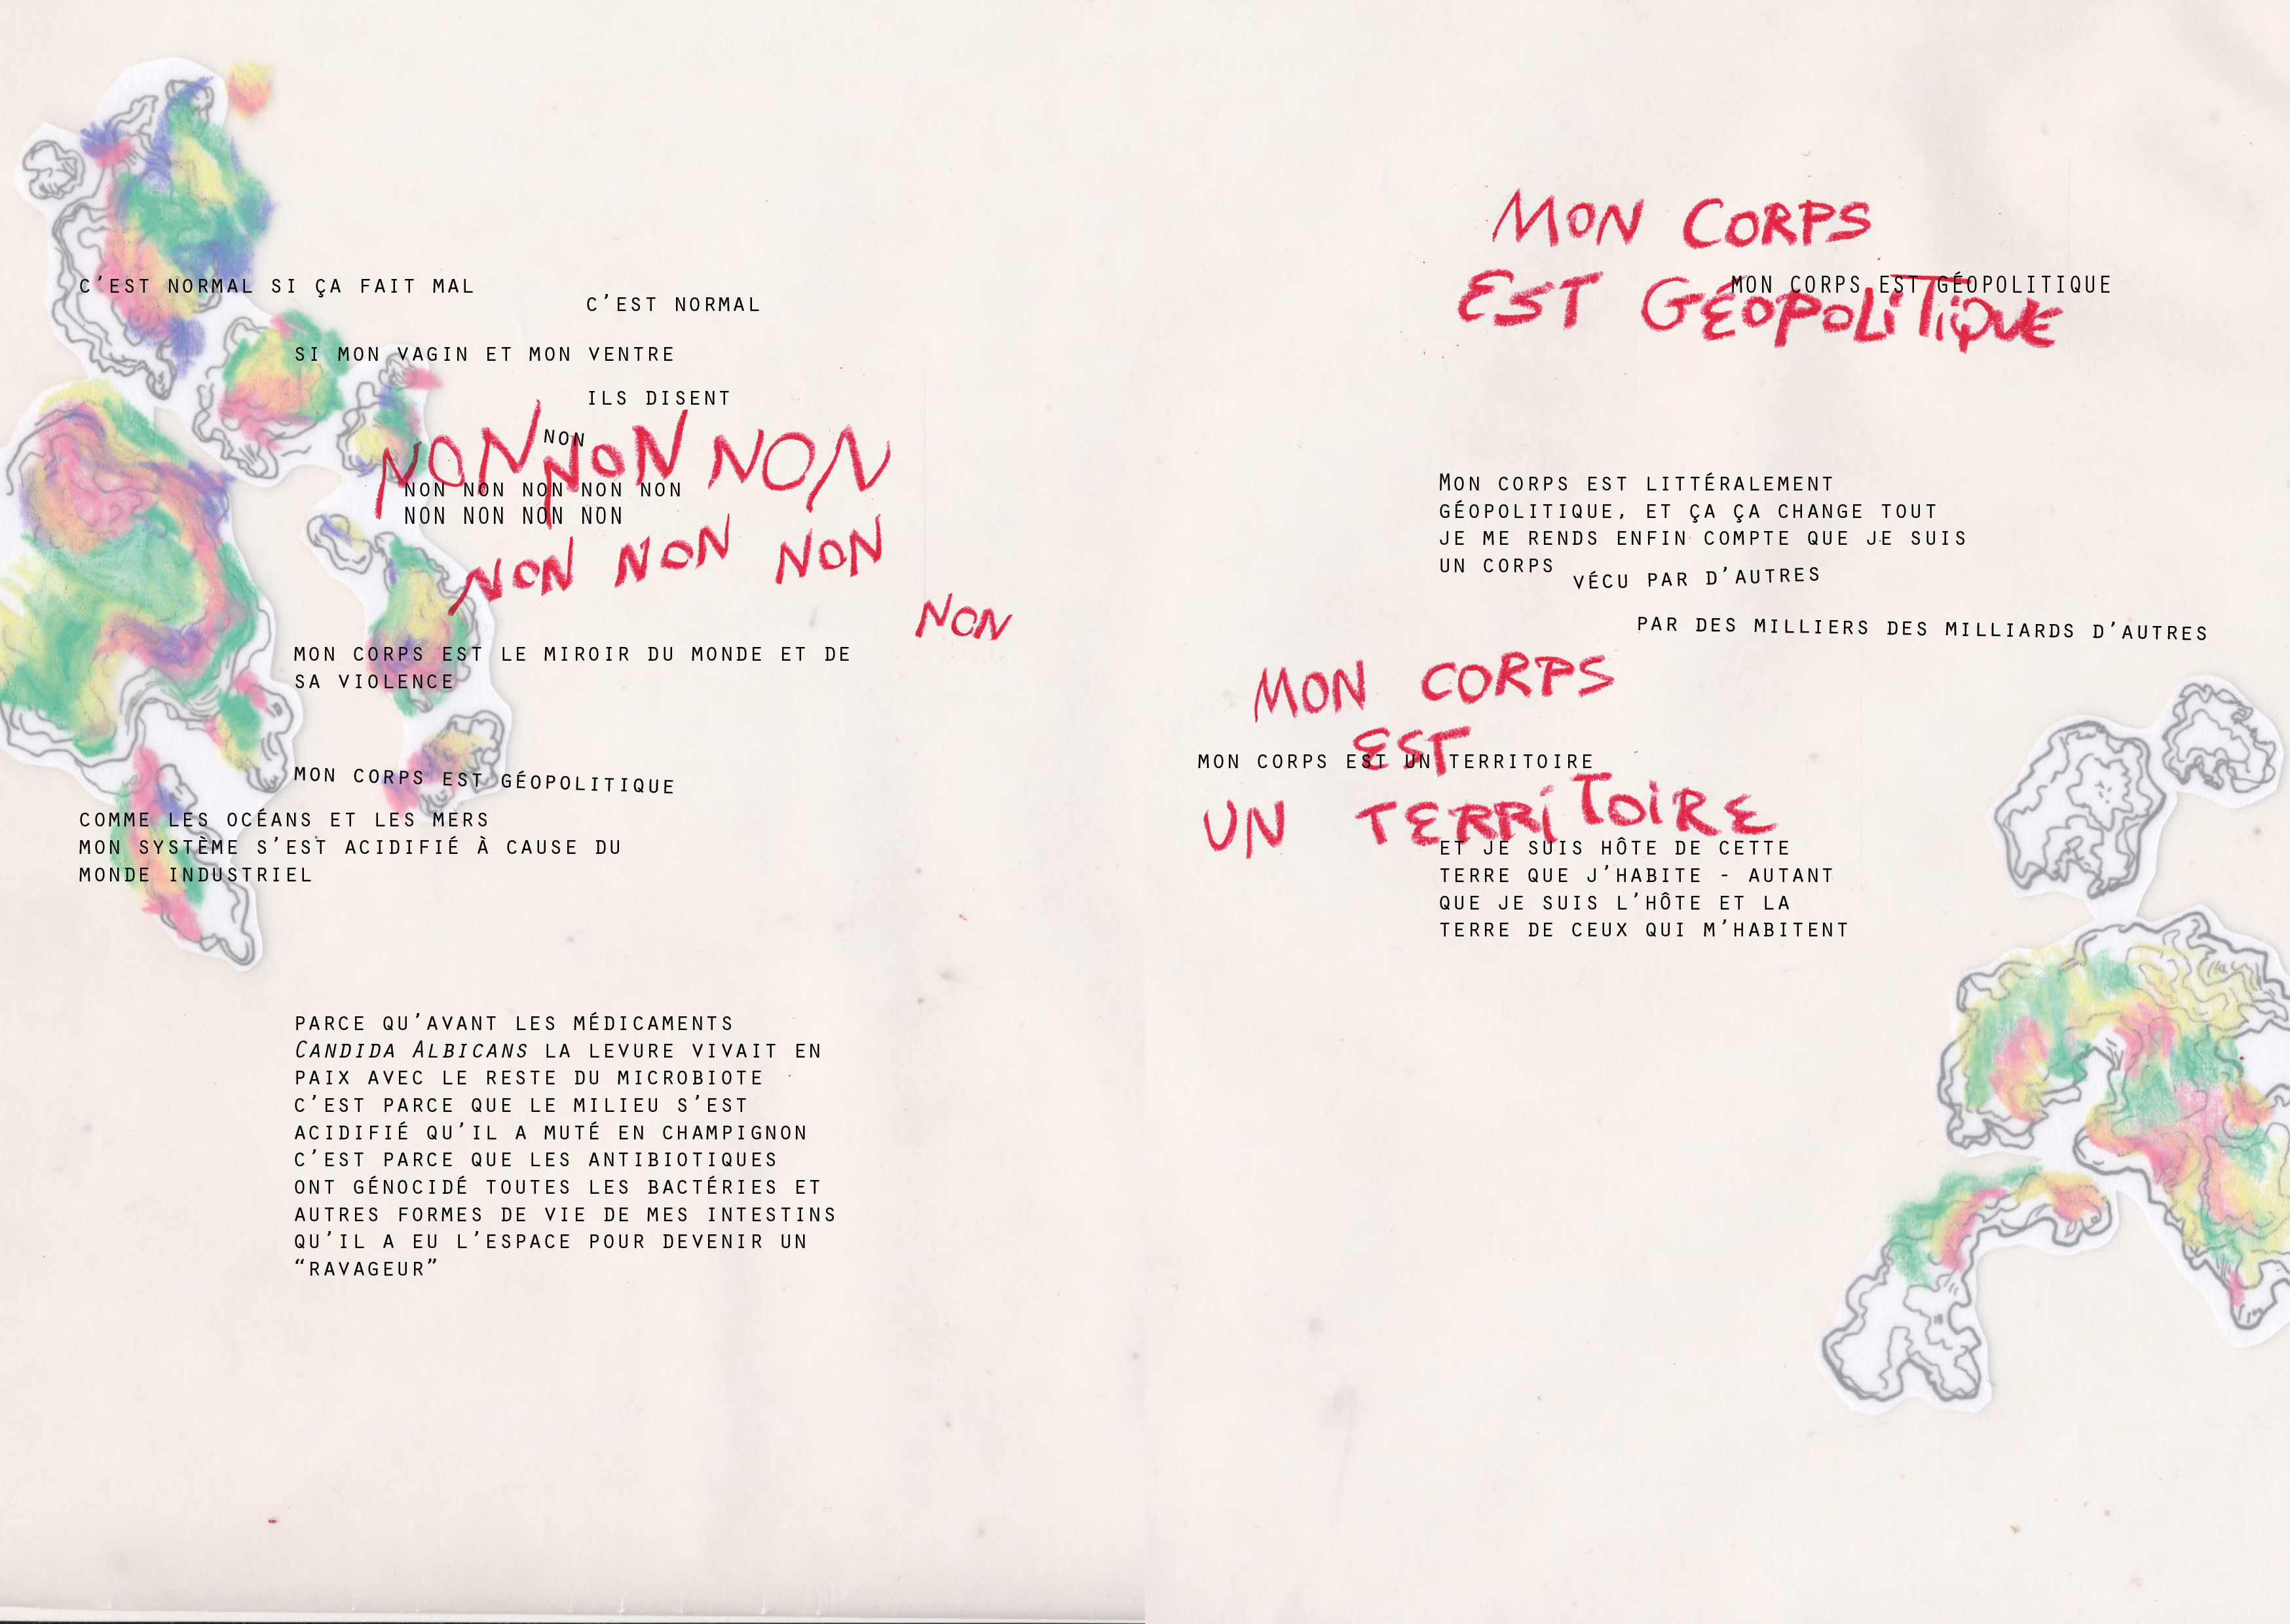 C'EST NORMAL SI ÇA FAIT MAL
C'EST NORMAL
SI MON VAGIN ET MON VENTRE
ILS DISENT
NON
NON NON NON
NON NON NON NON NON
NON NON NON NON
NON NON NON
NON
MON CORPS EST LE MIROIR DU MONDE ET DE
SA VIOLENCE
MON CORPS EST GÉOPOLITIQUE
COMME LES OCÉANS ET LES MERS
MON SYSTÈME S'EST ACIDIFIÉ À CAUSE DU
MONDE INDUSTRIEL
PARCE QU'AVANT LES MÉDICAMENTS
CANDIDA ALBICANS LA LEVURE VIVAIT EN
PAIX AVEC LE RESTE DU MICROBIOTE
C'EST PARCE QUE LE MILIEU S'EST
ACIDIFIÉ QU'IL A MUTÉ EN CHAMPIGNON
C'EST PARCE QUE LES ANTIBIOTIQUES
ONT GÉNOCIDÉ TOUTES LES BACTÉRIES ET
AUTRES FORMES DE VIE DE MES INTESTINS
QU'IL A EU L'ESPACE POUR DEVENIR UN
“RAVAGEUR”
MON CORPS
EST GÉOPOLITIQUE
MON CORPS EST GÉOPOLITIQUE
MON CORPS EST LITTÉRALEMENT
GÉOPOLITIQUE, ET ÇA ÇA CHANGE TOUT
JE ME RENDS ENFIN COMPTE QUE JE SUIS
UN CORPS
VÉCU PAR D'AUTRES
PAR DES MILLIERS DES MILLIARDS D'AUTRES
MON CORPS
EST
MON CORPS EST UN TERRITOIRE
UN TERRITOIRE
ET JE SUIS HÔTE DE CETTE
TERRE QUE J'HABITE - AUTANT
QUE JE SUIS L'HÔTE ET LA
TERRE DE CEUX QUI M'HABITENT